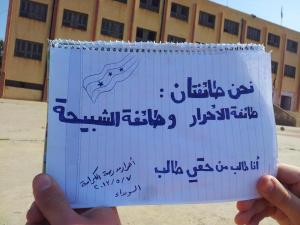 نحن طائفتان :
طائفة الأحرار وطائفة الشبيحة
أنا طالب من حقي طالب
أحرار مدرسة الكرامة
٢٠١٢/٥/٧
السويداء